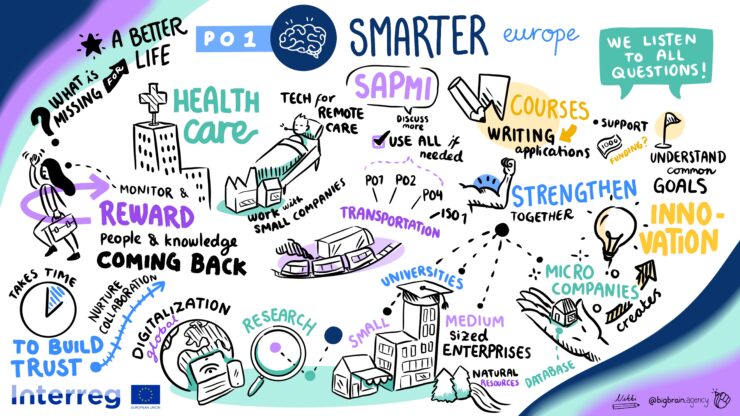 A BETTER
LIFE
WHAT is
MISSING FOR
?
PO1
SMARTER
europe
WE LISTEN
TO ALL
QUESTIONS!
HEALTH
care
TECH for
REMOTE
CARE
SAPMI
DISCUSS
more
USE ALL if
needed
PO1 PO2 PO4
ISO1
TRANSPORTATION
COURSES
WRITING
applications
• SUPPORT
FUNDING?
UNDERSTAND
common
GOALS
MONITOR &
REWARD
people & knowledge
COMING BACK
WORK with
SMALL COMPANIES
STRENGTHEN
TOGETHER
INNO-
VATION
TAKES TIME
TO BUILD
TRUST
NURTURE COLLABORATION
DIGITALIZATION
global
RESEARCH
UNIVERSITIES
SMALL
MEDIUM
sized
ENTERPRISES
NATURAL
RESOURCES
MICRO
COMPANIES
creates
DATABASE
Interreg
EUROPEAN UNION
@bigbrain.agency